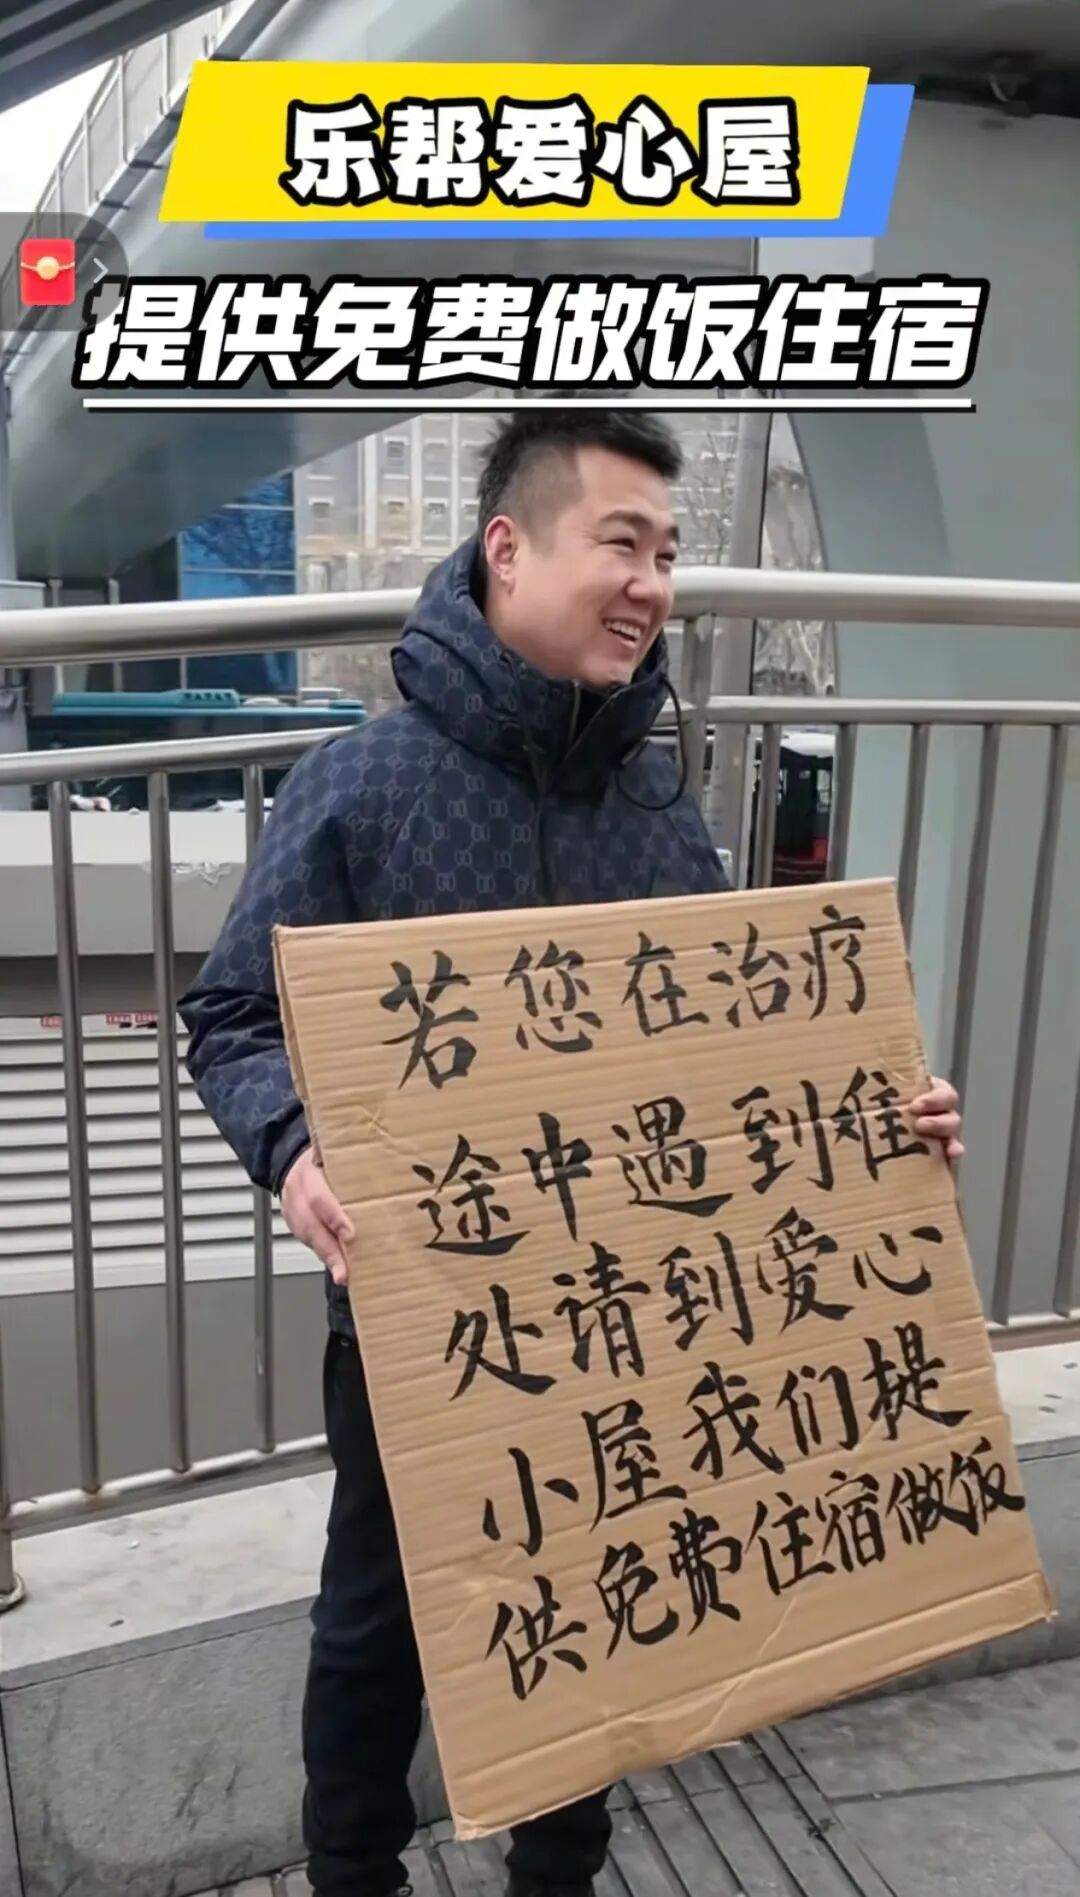 乐帮爱心屋
提供免费做饭住宿
若您在治疗
途中遇到难
处请到爱心
小屋我们提
供免费住宿做饭